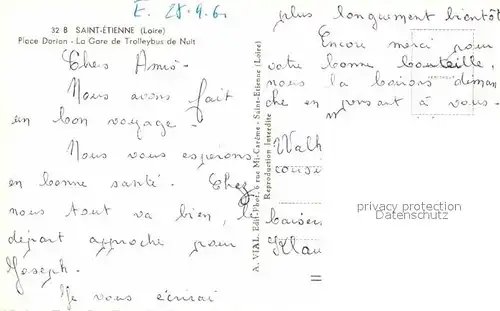 E. 28.9.61
32 B SAINT-ÉTIENNE (Loire)
Place Dorian - La Gare de Trolleybus de Nuit
Chers Amis -
Nous avons fait
un bon voyage -
Nous vous espérons
en bonne santé. Chez
nous tout va bien, le
départ approche pour
Joseph.
Je vous écrirai
plus longuement bientôt
Encore merci pour
votre bonne bouteille,
nous la boirons diman
che en pensant à vous -
Walh
baisers
Klau
A. VIAL, Edit-Phot. 6 rue Mi-Carême - Saint-Etienne (Loire)
Reproduction Interdite
privacy protection
Datenschutz